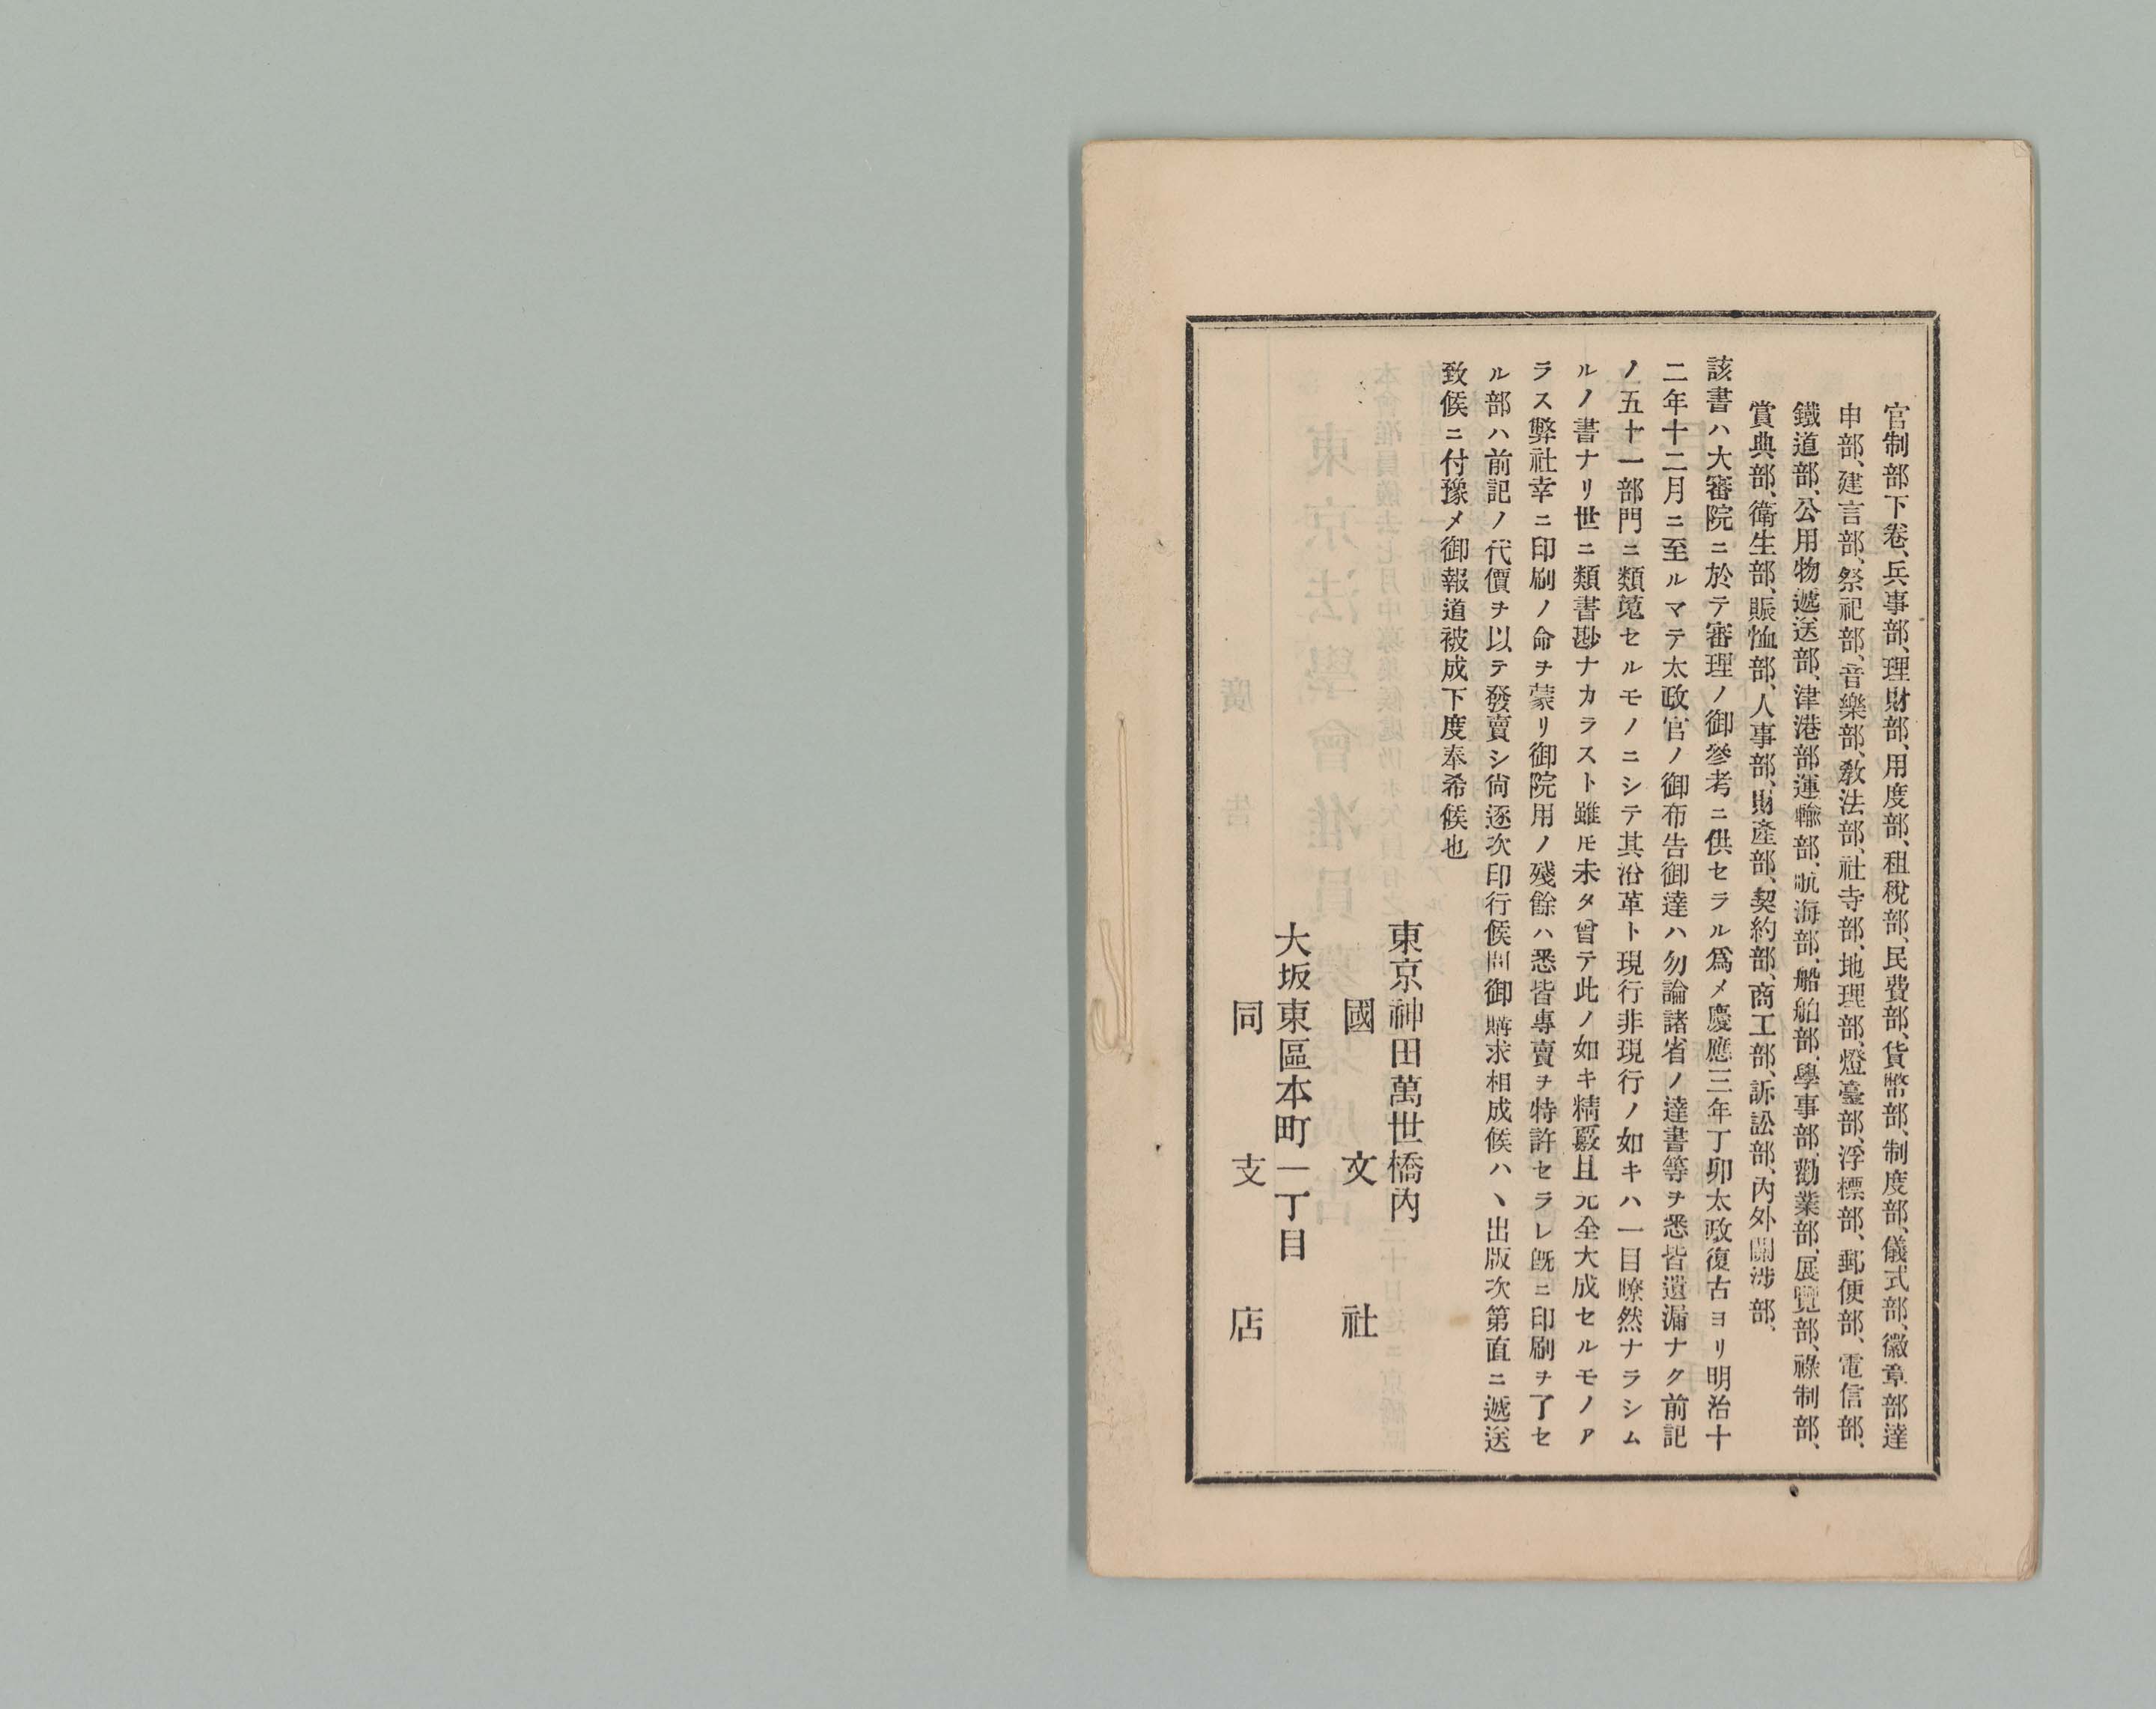 官制部下卷、兵事部、理財部、用度部、租税部、民費部、貨幣部、制度部、儀式部、徽章部達
申部、建言部、祭祀部、音樂部、敎法部、社寺部、地理部、燈臺部、浮標部、郵便部、電信部、
鐵道部、公用物遞送部、津港部運輸部、航海部、船舶部、學事部、勸業部、展覽部、祿制部、
賞典部、衛生部、賑恤部、人事部、財產部、契約部、商工部、訴訟部、内外關渉部、
該書ハ大審院ニ於テ審理ノ御參考ニ供セラル爲メ慶應三年丁卯太政復古ヨリ明治十
二年十二月ニ至ルマテ太政官ノ御布告御達ハ勿論諸省ノ達書等ヲ悉皆遺漏ナク前記
ノ五十一部門ニ類蒐セルモノニシテ其沿革ト現行非現行ノ如キハ一目瞭然ナラシム
ルノ書ナリ世ニ類書尠ナカラスト雖モ未タ曾テ此ノ如キ精覈且元全大成セルモノア
ラス弊社幸ニ印刷ノ命ヲ蒙リ御院用ノ殘餘ハ悉皆專賣ヲ特許セラレ既ニ印刷ヲ了セ
ル部ハ前記ノ代價ヲ以テ發賣シ尙逐次印行候間御購求相成候ハヽ出版次第直ニ遞送
致候ニ付豫メ御報道被成下度奉希候也
東京神田萬世橋内
國文社
大坂東區本町一丁目
同支店